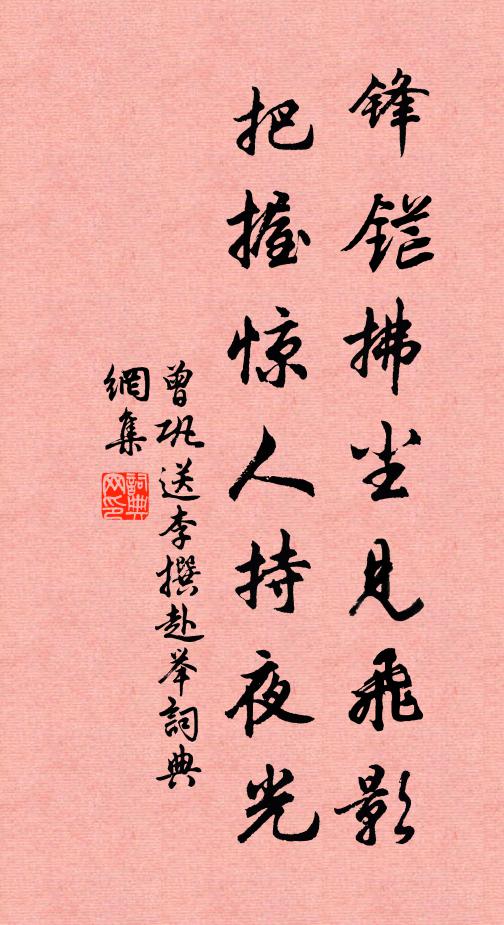 锋铓拂尘见飛影
把握惊人持夜光
曾巩送李撰赴举詞典
網集
詞典
网印